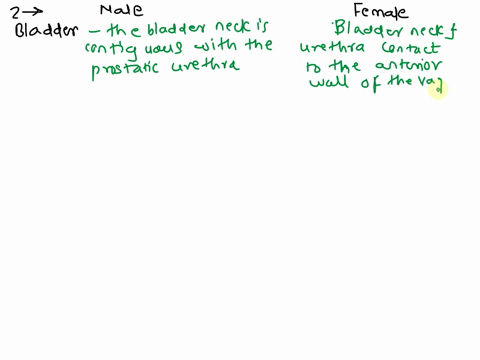 2→ Male Female
Bladder – the bladder neck is contiguous with the prostatic urethra
Bladder neck f urethra contact to the anterior wall of the vag